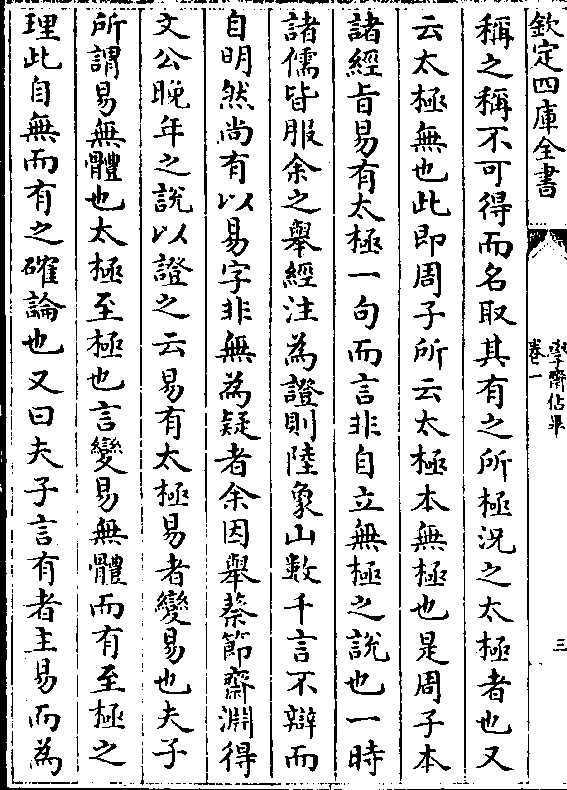 欽定四庫全書
學齋佔畢
卷一
三
稱之稱不可得而名取其有之所極況之太極者也又
云太極無也此即周子所云太極本無極也是周子本
諸經旨易有太極一句而言非自立無極之說也一時
諸儒皆服余之舉經注為證則陸象山數千言不辯而
自明然尚有以易字非無為疑者余因舉蔡節齋淵得
文公晚年之說以證之云易有太極易者變易也夫子
所謂易無體也太極至極也言變易無體而有至極之
理此自無而有之確論也又曰夫子言有者主易而為